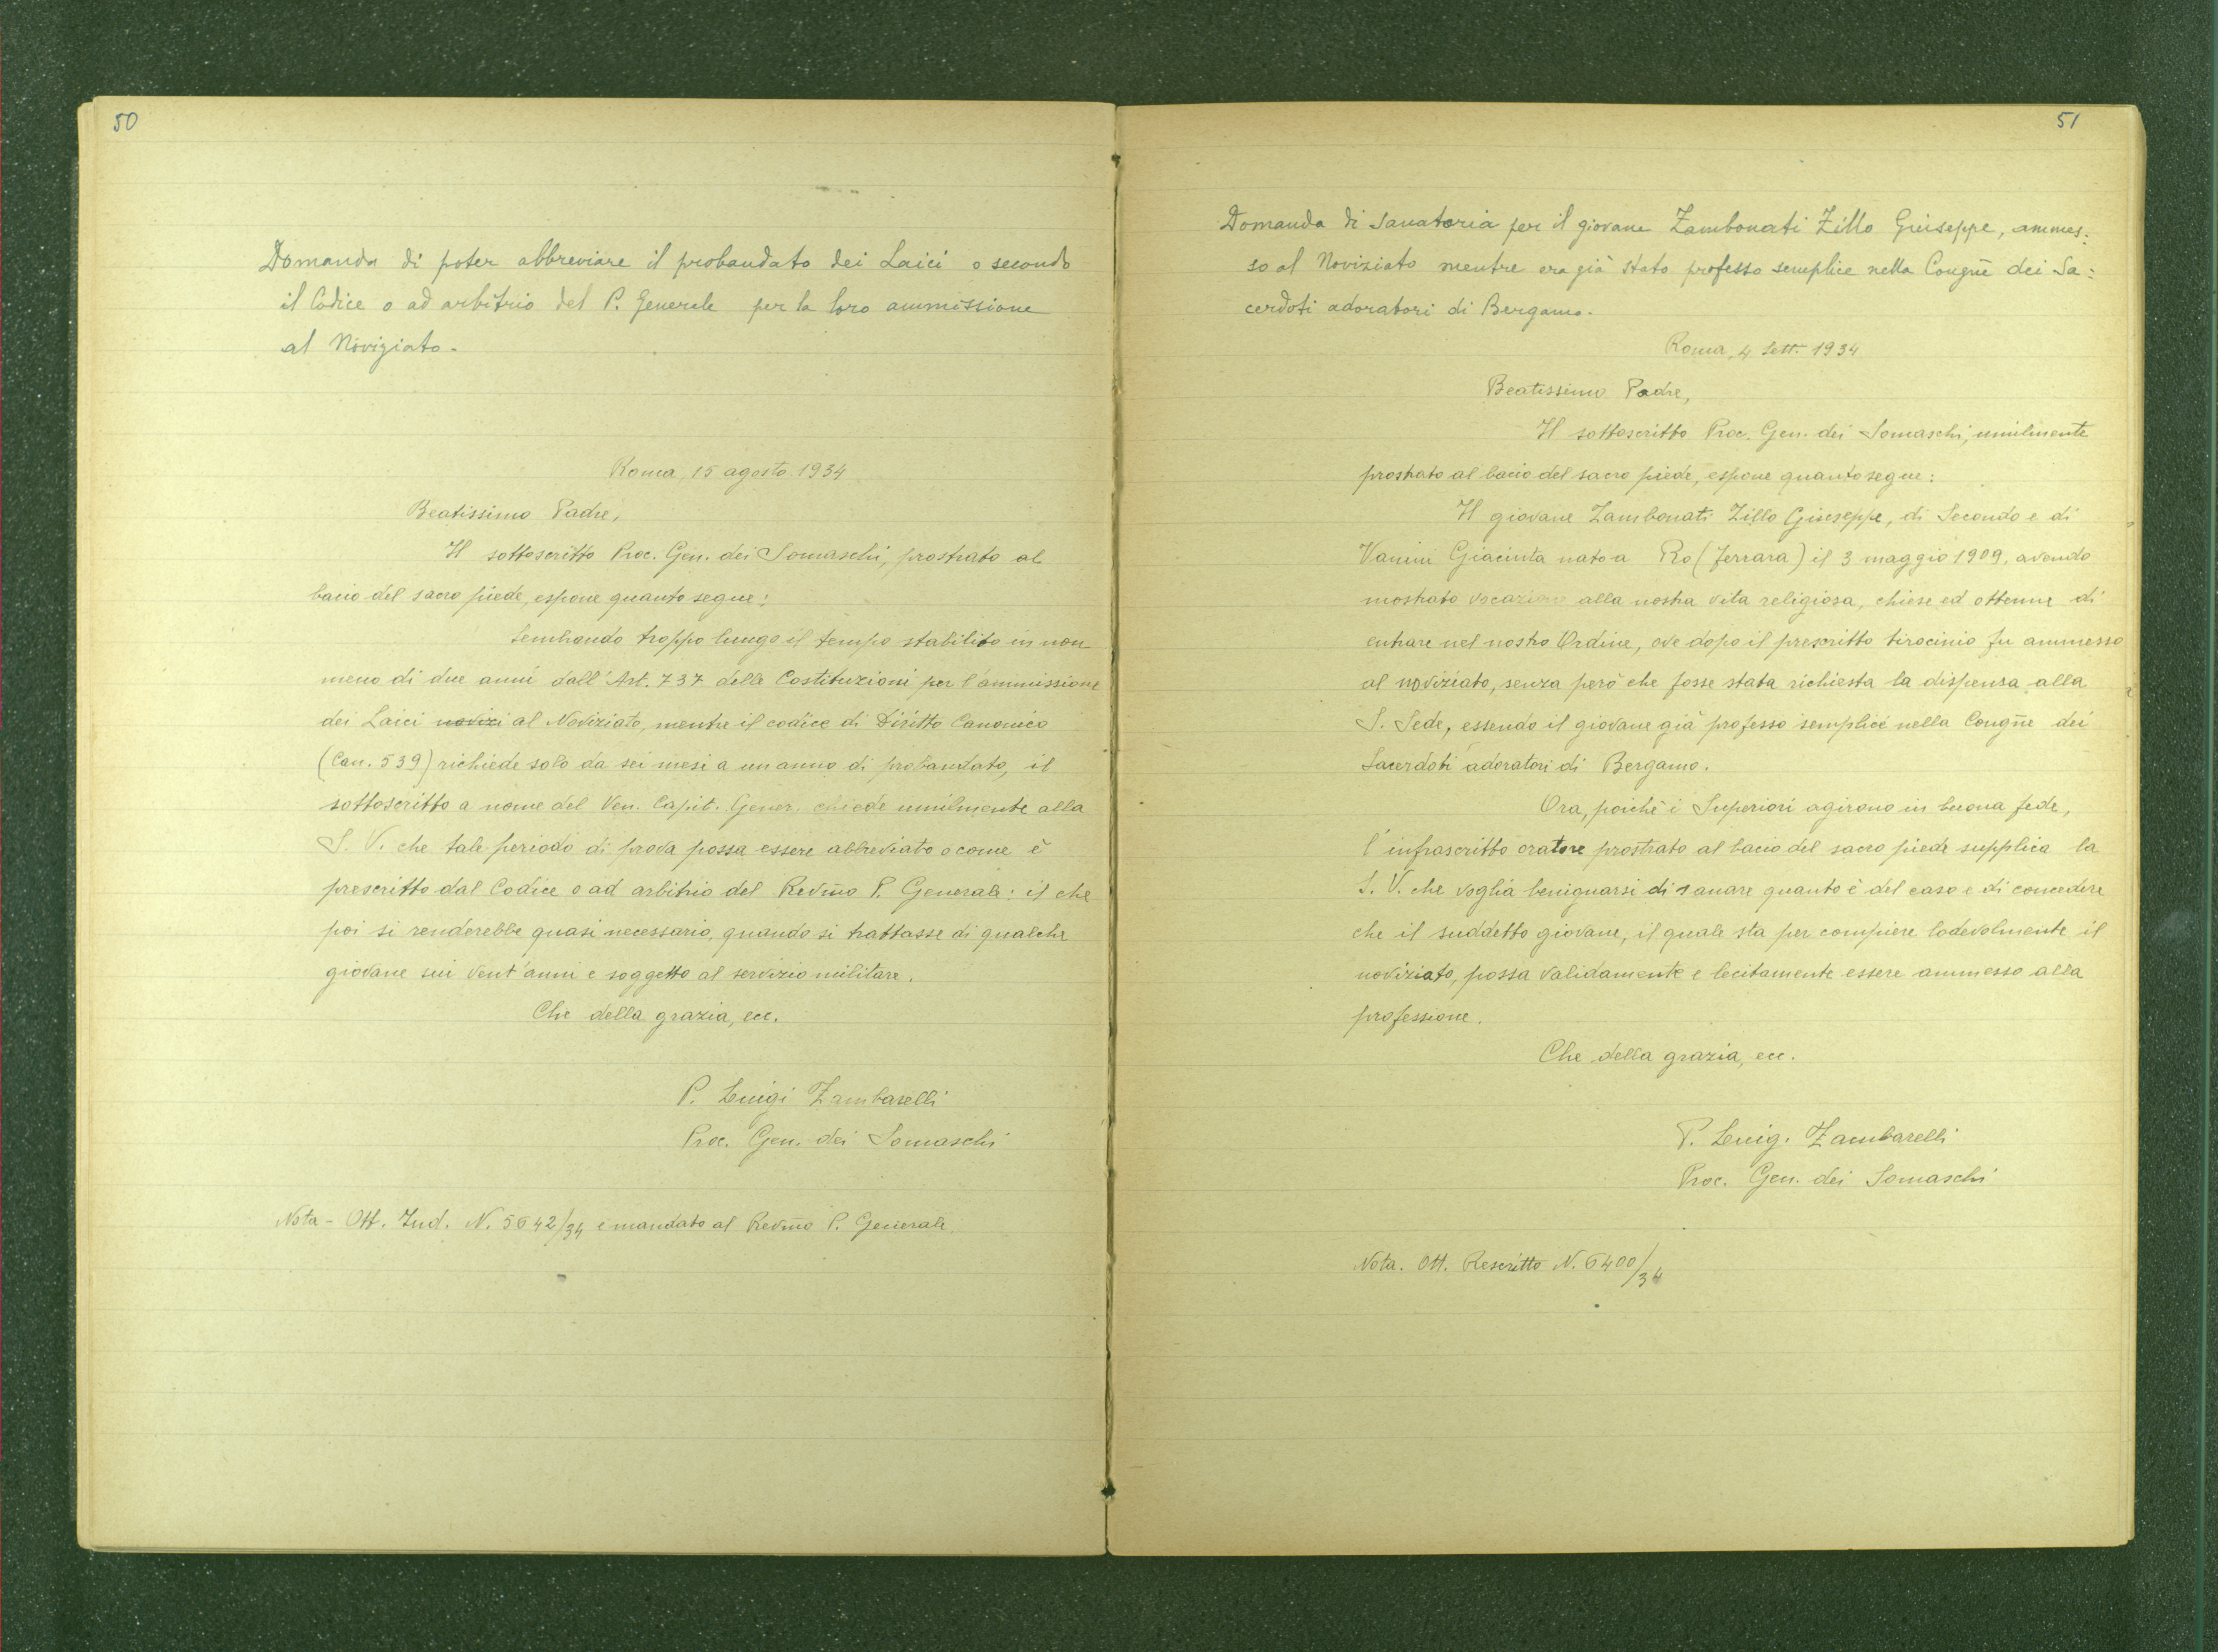 50
Domanda di poter abbreviare il probandato dei Laici o secondo
il Codice o ad arbitrio del P. Generale per la loro ammissione
al Noviziato.
Roma, 15 agosto 1934
Beatissimo Padre,
Il sottoscritto Proc. Gen. dei Somaschi, prostrato al
bacio del sacro piede, espone quanto segue:
Sembrando troppo lungo il tempo stabilito in non
meno di due anni dall'Art. 737 delle Costituzioni per l'ammissione
dei Laici novizi al Noviziato, mentre il codice di Diritto Canonico
(Can. 539) richiede solo da sei mesi a un anno di probandato, il
sottoscritto a nome del Ven. Capit. Gener. chiede umilmente alla
S. V. che tale periodo di prova possa essere abbreviato o come è
prescritto dal Codice o ad arbitrio del Revmo P. Generale: il che
poi si renderebbe quasi necessario, quando si trattasse di qualche
giovane sui vent'anni e soggetto al servizio militare.
Che della grazia, ecc.
P. Luigi Zambarelli
Proc. Gen. dei Somaschi
Nota - Ott. Ind. N. 5642/34 e mandato al Revmo P. Generale
51
Domanda di Sanatoria per il giovane Zambonati Zillo Giuseppe, ammes:
so al Noviziato mentre era già stato professo semplice nella Congne dei Sa:
cerdoti adoratori di Bergamo.
Roma, 4 Sett. 1934
Beatissimo Padre,
Il sottoscritto Proc. Gen. dei Somaschi, umilmente
prostrato al bacio del sacro piede, espone quanto segue:
Il giovane Zambonati Zillo Giuseppe, di Secondo e di
Vanini Giacinta nato a Ro (Ferrara) il 3 maggio 1909, avendo
mostrato vocazione alla nostra vita religiosa, chiese ed ottenne di
entrare nel nostro Ordine, ove dopo il prescritto tirocinio fu ammesso
al noviziato, senza però che fosse stata richiesta la dispensa alla
S. Sede, essendo il giovane già professo semplice nella Congne dei
Sacerdoti adoratori di Bergamo.
Ora, poichè i Superiori agirono in buona fede,
l'infrascritto oratore prostrato al bacio del sacro piede supplica la
S. V. che voglia benignarsi di sanare quanto è del caso e di concedere
che il suddetto giovane, il quale sta per compiere lodevolmente il
noviziato, possa validamente e lecitamente essere ammesso alla
professione.
Che della grazia, ecc.
P. Luig. Zambarelli
Proc. Gen. dei Somaschi
Nota. Ott. Rescritto N. 6400/34